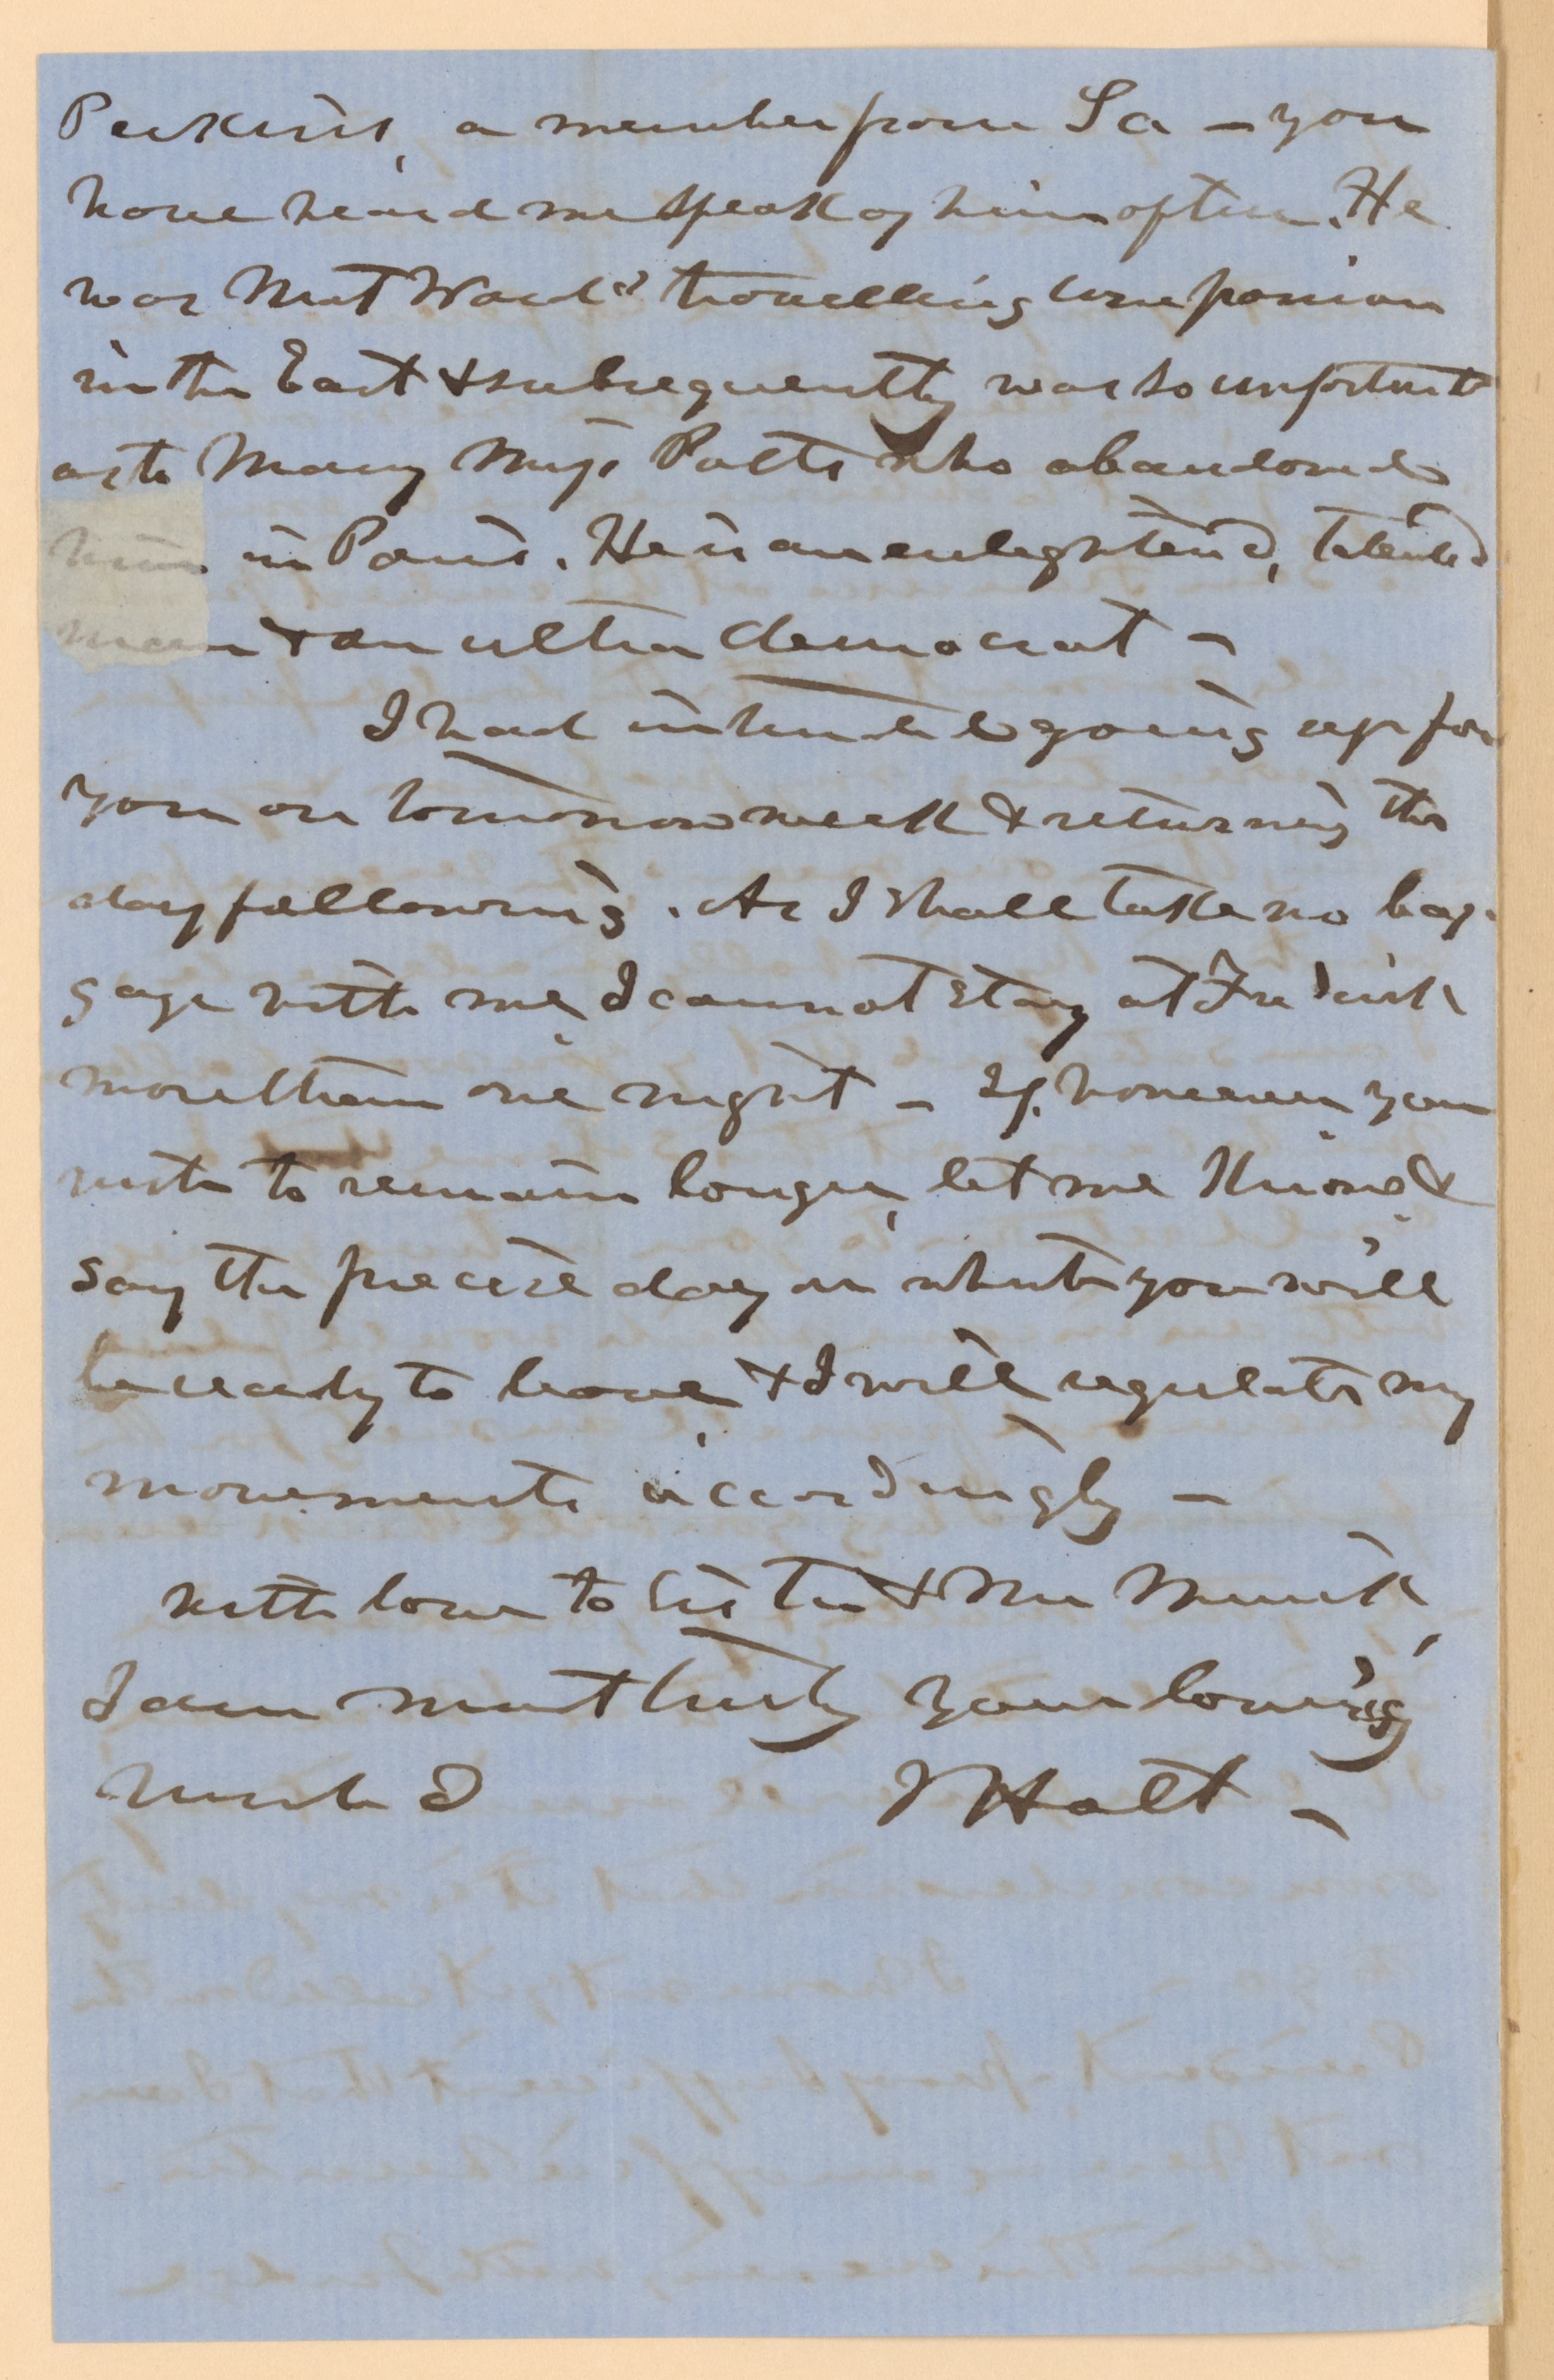 Perkins, a member from La - you
have heard me speak of him often. He
was Mat Ward's travelling companion
in the East & subsequently was so unfortunate
as to Marry Miss Potts who abandoned
him in Paris. He is an enlightened, talented
man & an ultra democrat -
I had intended going up for
you on tomorrow week & returning the
day following. As I shall take no bag-
gage with me, I cannot stay at Fredrick
more than one night - If, however, you
wish to remain longer, let me know, &
say the precise day on which you will
be ready to leave, & I will regulate my
movements accordingly -
with love to Sister & Mr
I am most truly your loving
husband J Holt -